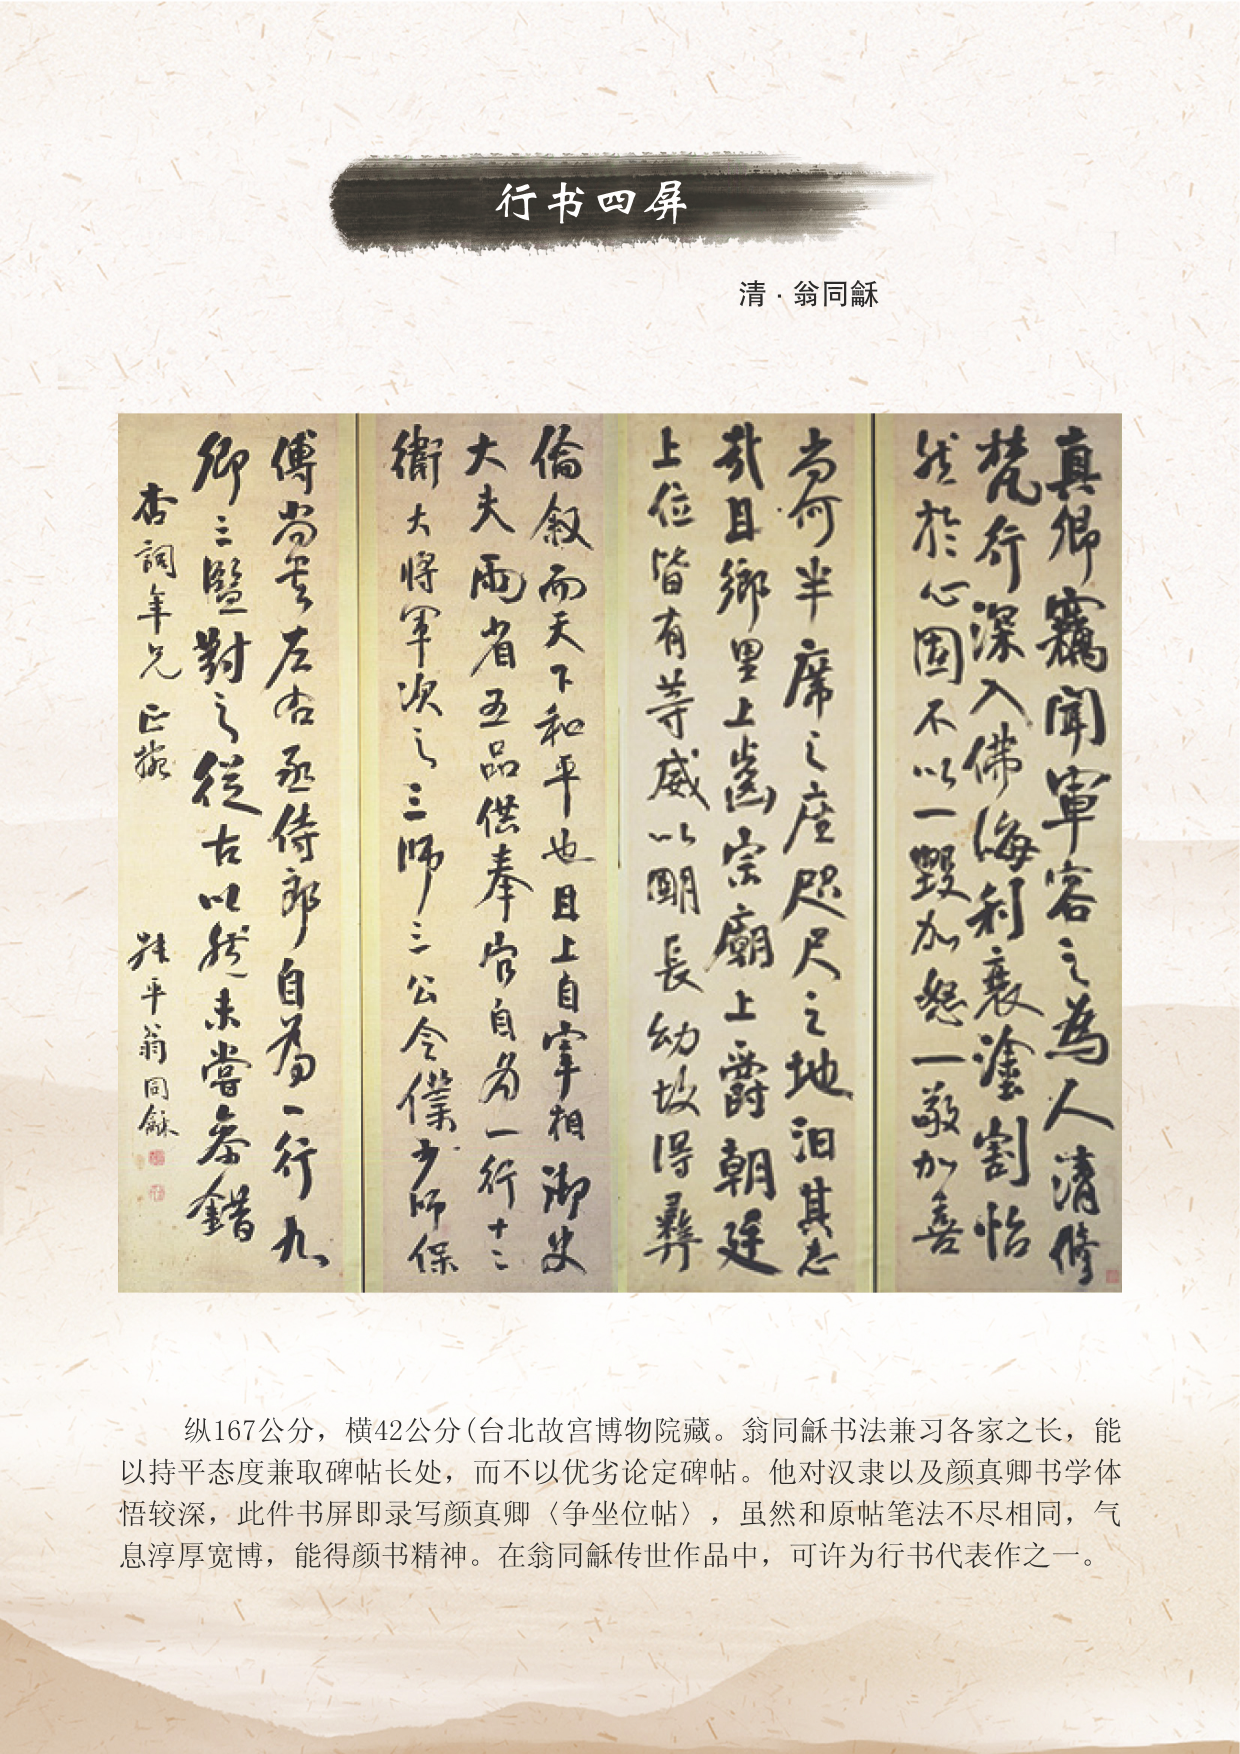 行书四屏
清·翁同龢
真卿竊聞軍容之為人清修
梵行深入佛海利衰塗割怡
然於心固不以一毀加怒一敬加喜
尚何半席之座咫尺之地汩其志
哉且鄉里上齒宗廟上爵朝廷
上位皆有等威以明長幼故得彝
倫敘而天下和平也且上自宰相御史
大夫兩省五品供奉官自為一行十二
衛大將軍次之三師三公令僕少師保
傅尚書左右丞侍郎自為一行九
卿三監對之從古以然未嘗參錯
杏詞年兄正
叔平翁同龢
纵167公分，横42公分(台北故宫博物院藏。翁同龢书法兼习各家之长，能
以持平态度兼取碑帖长处，而不以优劣论定碑帖。他对汉隶以及颜真卿书学体
悟较深，此件书屏即录写颜真卿〈争坐位帖〉，虽然和原帖笔法不尽相同，气
息淳厚宽博，能得颜书精神。在翁同龢传世作品中，可许为行书代表作之一。